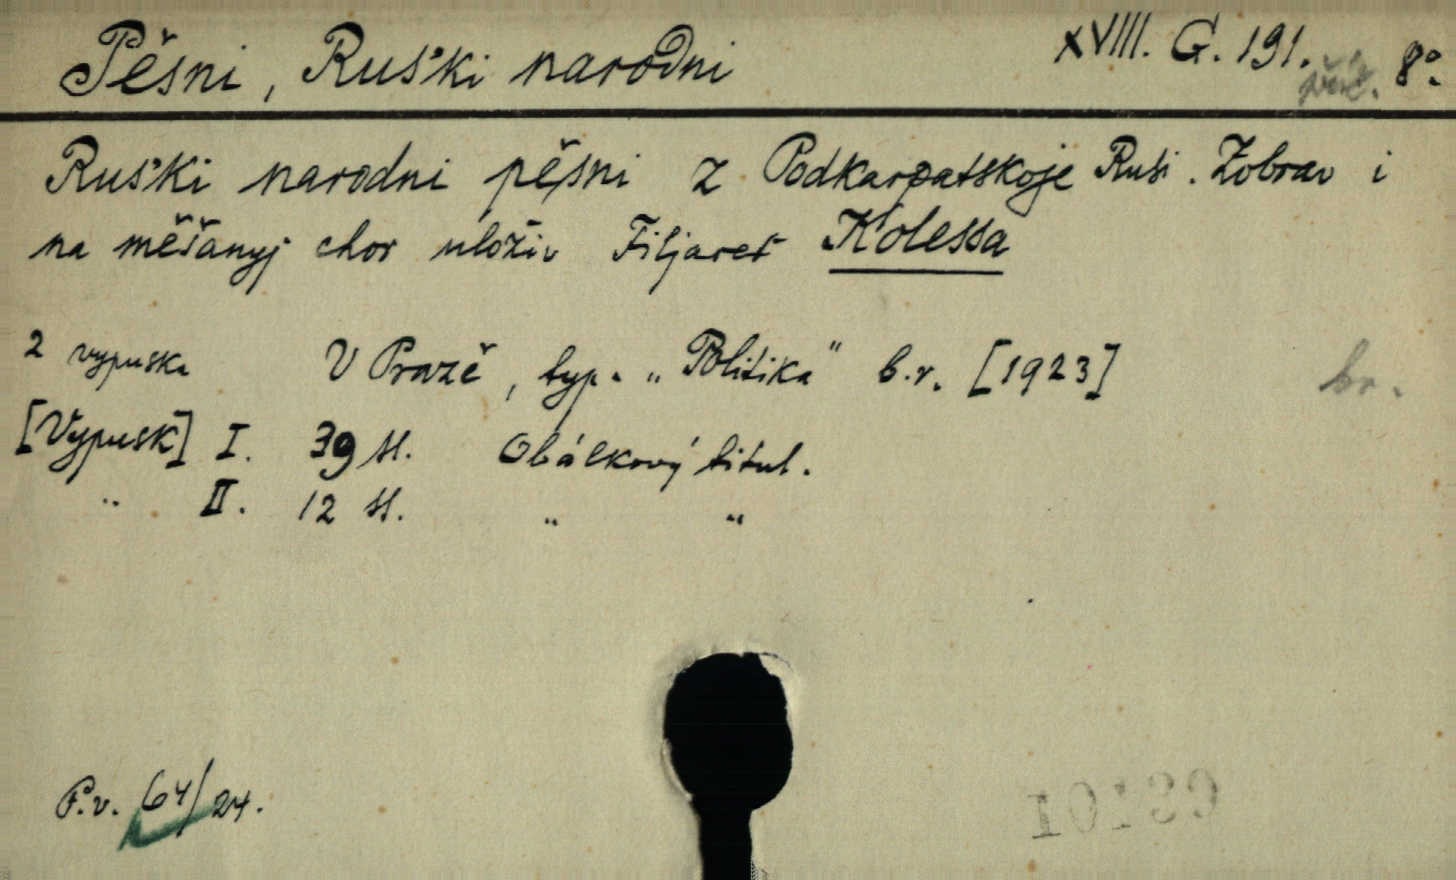 Pěsni, Ruśki narodni XVIII. G. 191. přív. 8°.
Ruśki narodni pěsni z Podkarpatskoje Rusi. Zobrav i
na měšanyj chor uloživ Filjaret Kolessa
2 vypuska V Prazě, typ. „Politika" b.r. [1923] br.
[Vypusk] I. 39 st. Obálkový titul.
" II. 12 st. " "
P.v. 64/24.